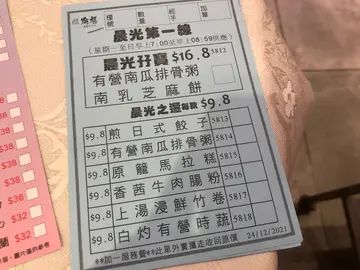 檯號
數量
經手
加單
晨光第一線
(星期一至日早上7:00至早上08:59供應)
晨光孖寶 $16.8 5812
有營南瓜排骨粥
南乳芝麻餅
晨光之選每款 $9.8
$9.8 煎日式餃子 5813
$9.8 有營南瓜排骨粥 5814
$9.8 原籠馬拉糕 5815
$9.8 香茜牛肉腸粉 5816
$9.8 上湯浸鮮竹卷 5817
$9.8 白灼有營時蔬 5818
**加一服務費**此單外賣攞走收回原價 24/12/2021
$38
$38
$38
$38
$32
$32
蘭 $32
圖片謹供參考